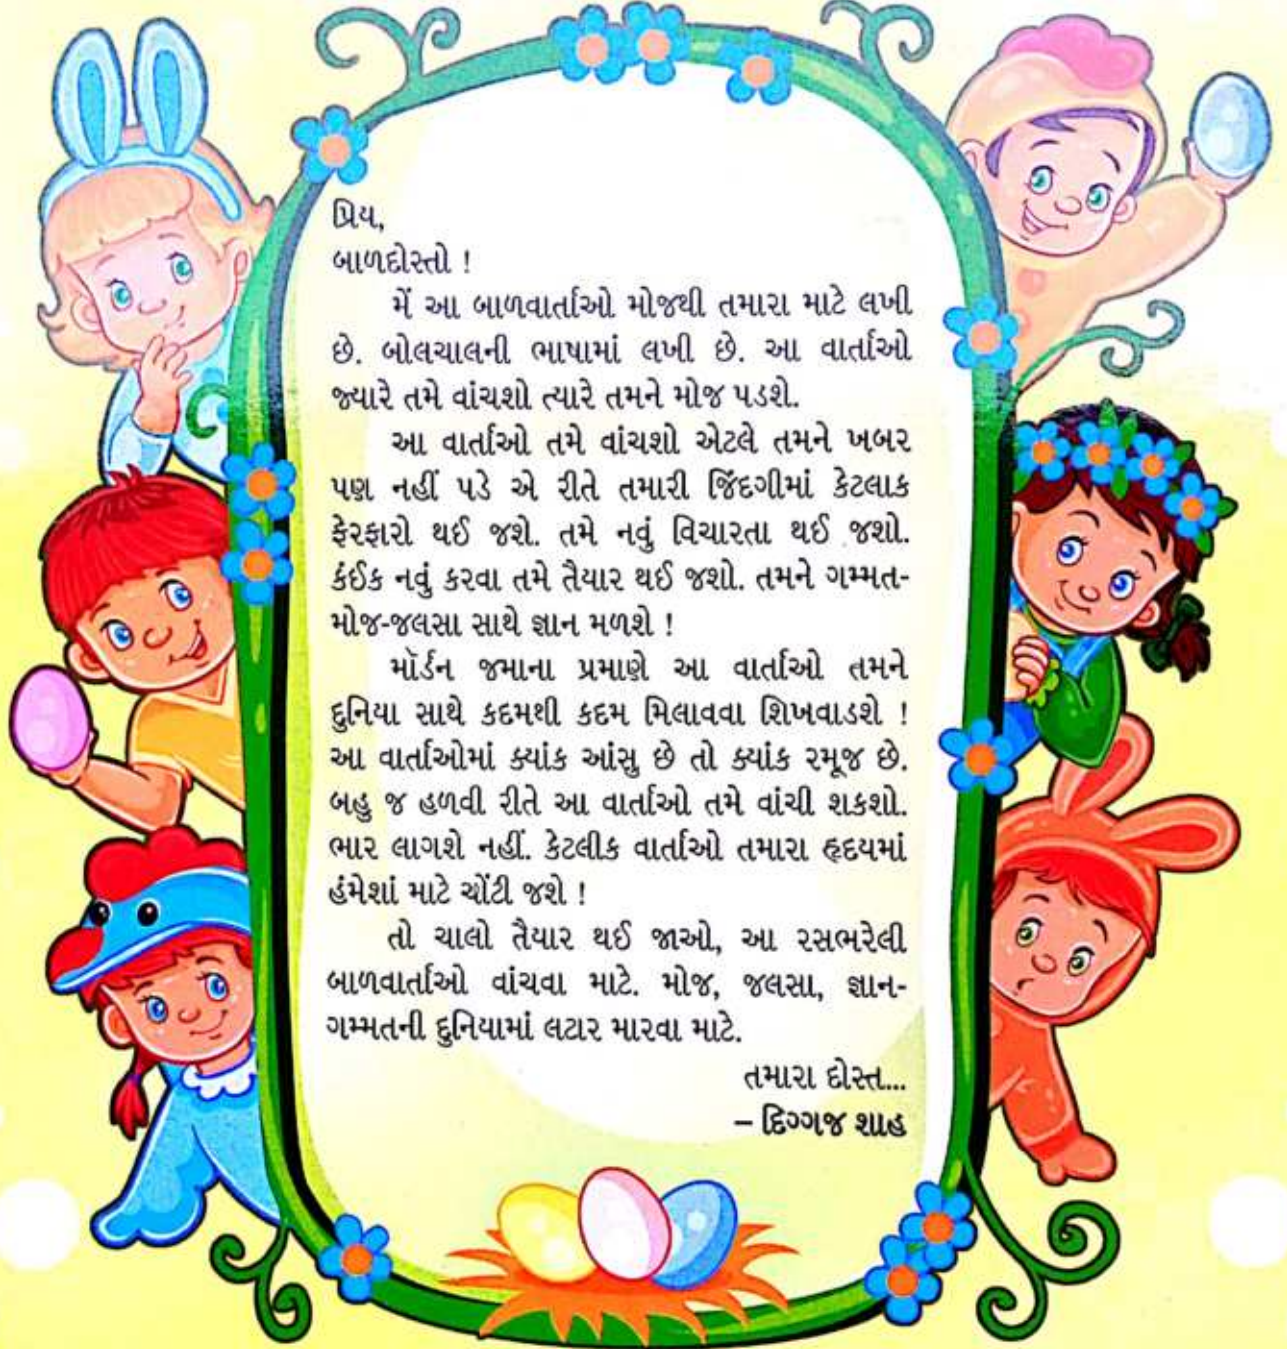 પ્રિય,
બાળદોસ્તો !
મેં આ બાળવાર્તાઓ મોજથી તમારા માટે લખી
છે. બોલચાલની ભાષામાં લખી છે. આ વાર્તાઓ
જ્યારે તમે વાંચશો ત્યારે તમને મોજ પડશે.
આ વાર્તાઓ તમે વાંચશો એટલે તમને ખબર
પણ નહીં પડે એ રીતે તમારી જિંદગીમાં કેટલાક
ફેરફારો થઈ જશે. તમે નવું વિચારતા થઈ જશો.
કંઈક નવું કરવા તમે તૈયાર થઈ જશો. તમને ગમ્મત-
મોજ-જલસા સાથે જ્ઞાન મળશે !
મૉર્ડન જમાના પ્રમાણે આ વાર્તાઓ તમને
દુનિયા સાથે કદમથી કદમ મિલાવવા શિખવાડશે !
આ વાર્તાઓમાં ક્યાંક આંસુ છે તો ક્યાંક રમૂજ છે.
બહુ જ હળવી રીતે આ વાર્તાઓ તમે વાંચી શકશો.
ભાર લાગશે નહીં. કેટલીક વાર્તાઓ તમારા હૃદયમાં
હંમેશાં માટે ચોંટી જશે !
તો ચાલો તૈયાર થઈ જાઓ, આ રસભરેલી
બાળવાર્તાઓ વાંચવા માટે. મોજ, જલસા, જ્ઞાન-
ગમ્મતની દુનિયામાં લટાર મારવા માટે.
તમારા દોસ્ત...
– દિગ્ગજ શાહ